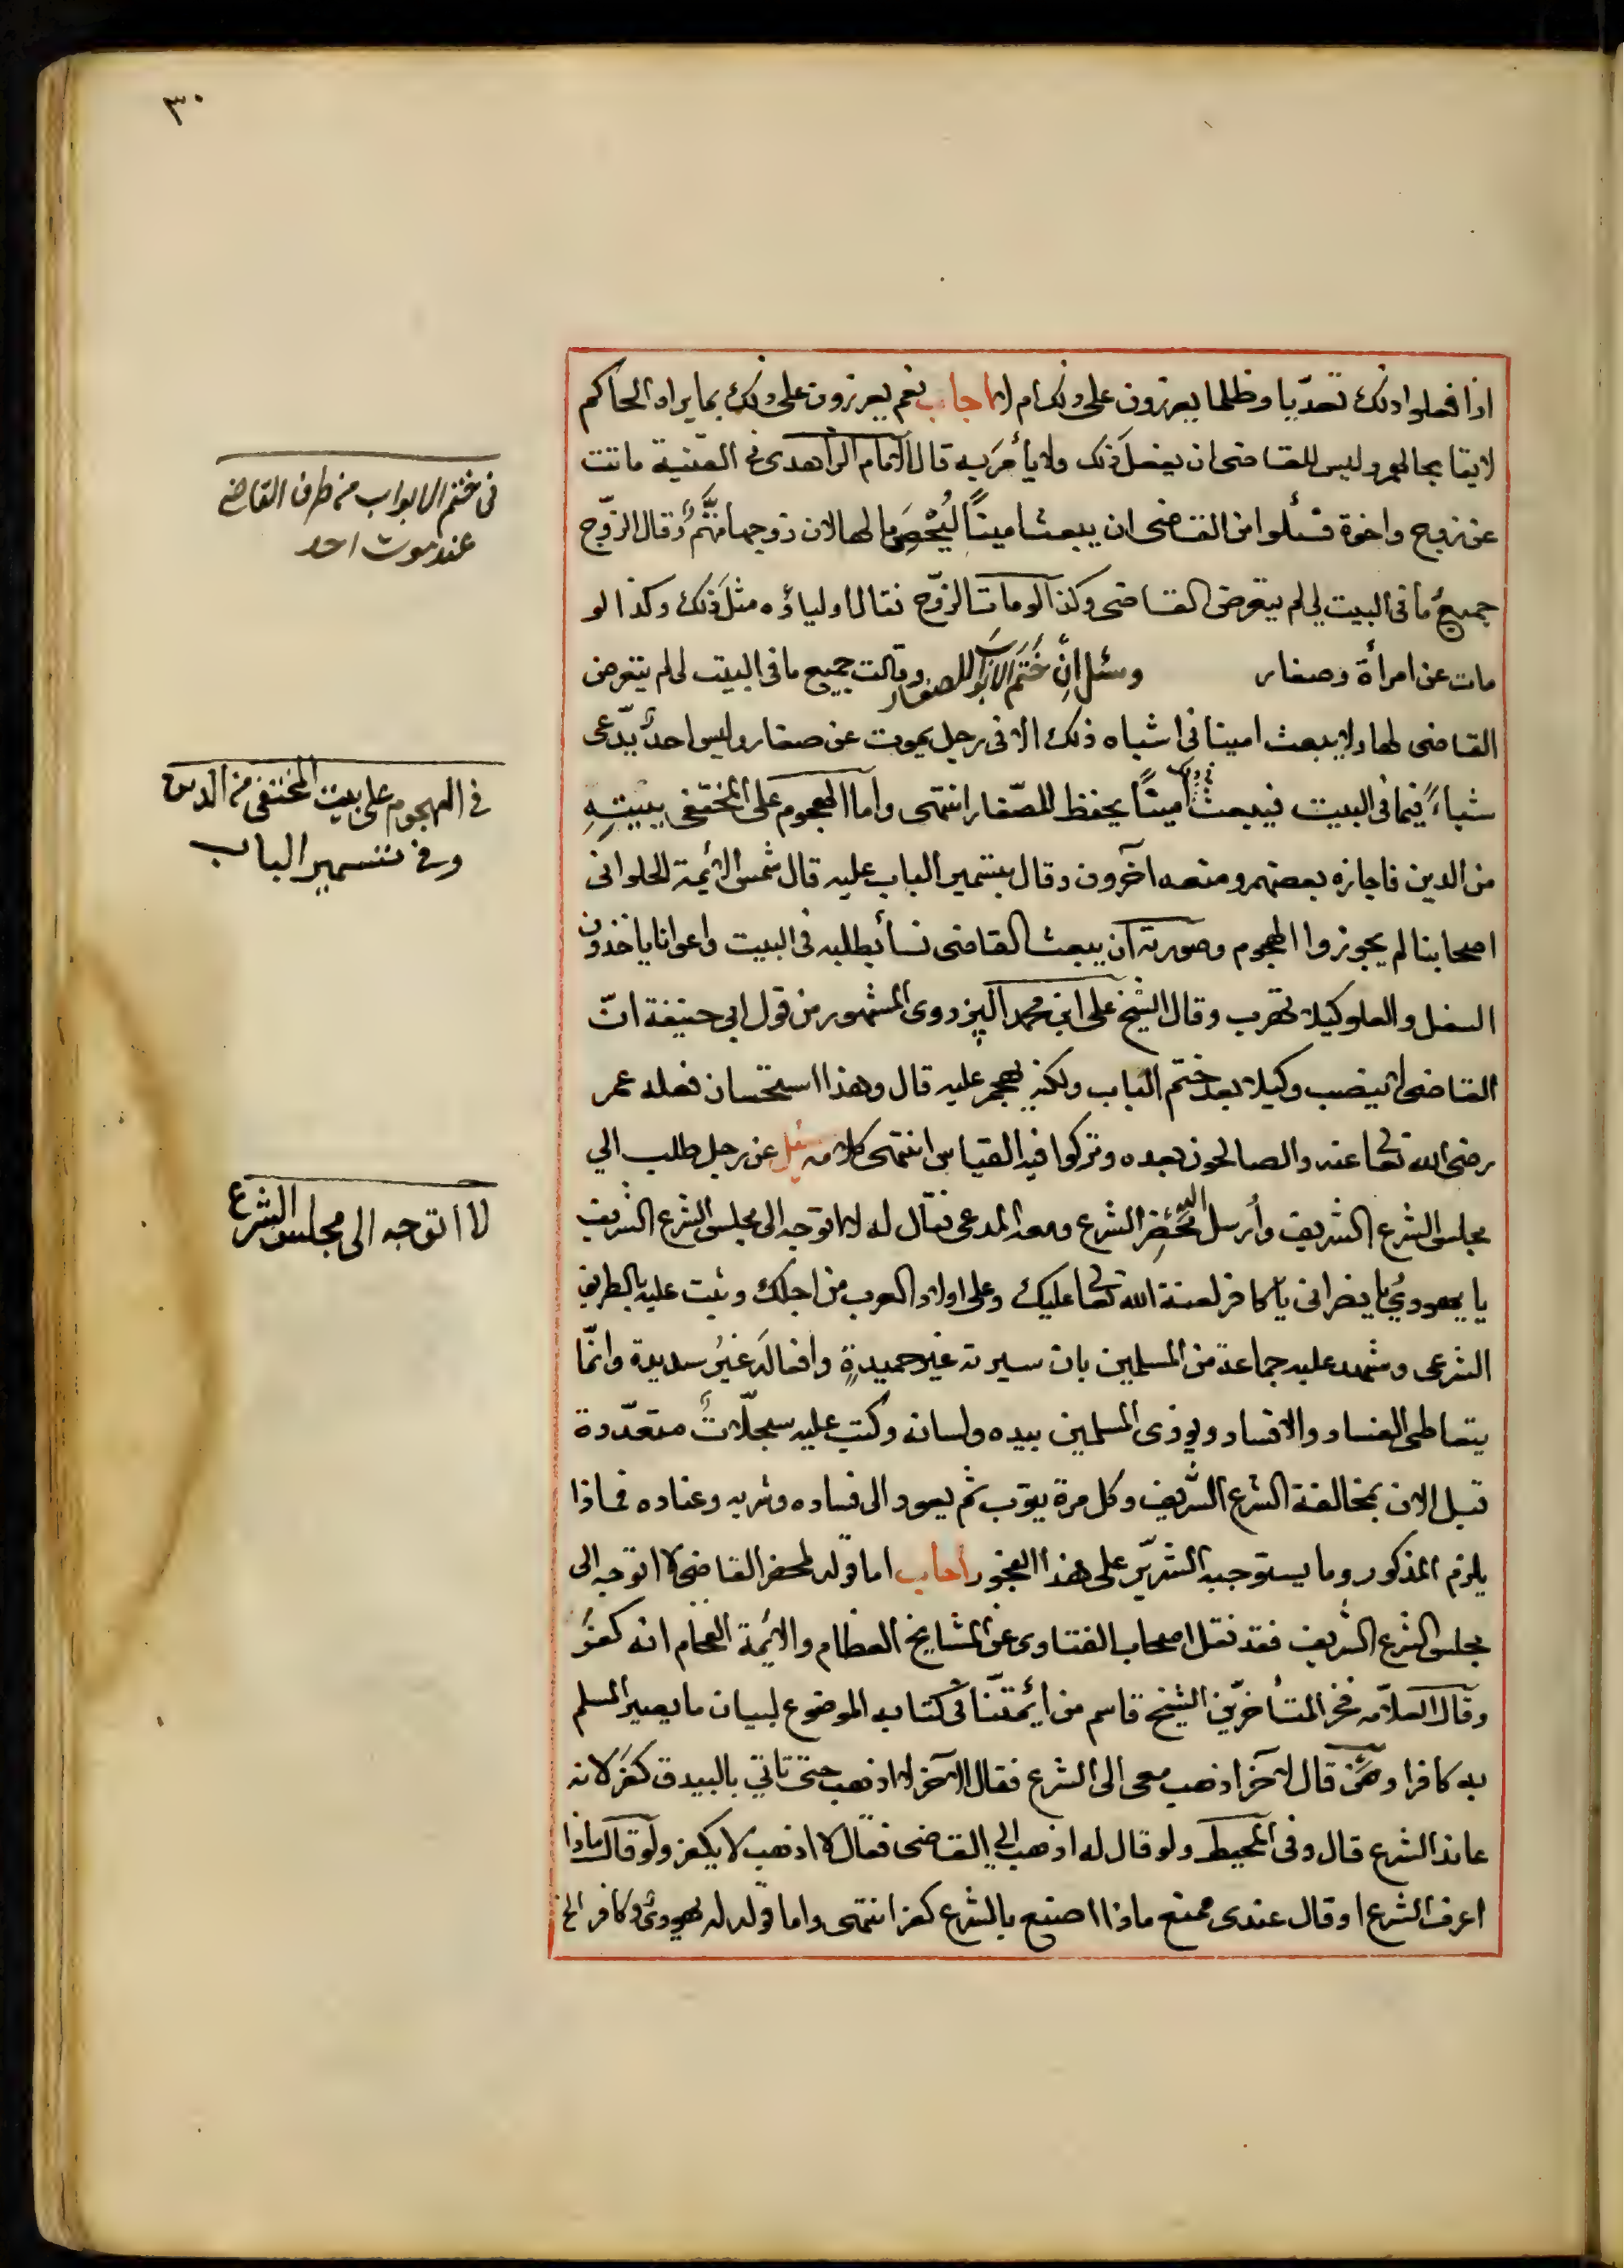 ٣٠
اذا فعلوا ذلك تعدّيا وظلما يعزرون على ذلك ام لا اجاب نعم يعزرون على ذلك بما يراه الحاكم
لايقا بحالهم وليس للقاضى ان يفعل ذلك ولا يأمر به قال الامام الزاهدى فى القنية ماتت
عن زوج واخوة فسئلوا من القاضى ان يبعث امينًا ليُحْصِىَ مالها لان زوجها متَّهمٌ وقال الزوّج
جميعُ ما فى البيت لى لم يتعرض القاضى وكذا لو مات الزوّج فقال اولياؤه مثل ذلك وكذا لو
مات عن امرأة وصغار وسئل ان خَتَمَ الابوابَ للصغار وقالت جميع ما فى البيت لى لم يتعرض
القاضى لها ولا يبعث امينا فى اشباه ذلك الا فى رجل يموت عن صغار وليس احدٌ يدّعى
شياءً فيما فى البيت فيبعث امينًا يحفظ للصّغار انتهى واما الهجوم على المختفى ببيتِهِ
من الدين فاجازه بعضهم ومنعه آخرون وقال بتسمير الباب عليه قال شمس الائمة الحلوانى
اصحابنا لم يجوزوا الهجوم وصورته ان يبعث القاضى نسأ بطلبه فى البيت واعوانا ياخذون
السفل والعلو كيلا تهرب وقال الشيخ على ابن محمد البزدوى المشهور من قول ابى حنيفة انّ
القاضى لا ينصب وكيلا بعد ختم الباب ولكن يهجم عليه قال وهذا استحسان فعله عمر
رضى الله تعا عنه والصالحون بعده وتركوا فيه القياس انتهى كلامه سئل عن رجل طلب الى
مجلس الشرع الشريف وأرسل اليه محُضِر الشرع ومعه المدعى فقال له لا اتوجه الى مجلس الشرع الشريف
يا يهودىُّ يا نصرانى يا كافر لعنة الله تعا عليك وعلى اولاد العرب من اجلك وثبت عليه بالطريق
الشرعى وشهد عليه جماعة من المسلمين بان سيرته غير حميدةٍ وافعالَه غيرُ سديدة وانمّا
يتعاطى الفساد والافساد ويوذى المسلمين بيده ولسانه وكتب عليه سجلّاتٌ متعدّدة
قبل الان بمخالفة الشرع الشّريف وكل مرة يتوب ثم يعود الى فساده وشربه وعناده فماذا
يلزم المذكور وما يستوجبه الشرّير على هذا الفجور اجاب اما قوله لمحضر القاضى لا اتوجه الى
مجلس الشرع الشريف فقد نقل اصحاب الفتاوى عن المشايخ العظام والائمة الفخام انه كفرٌ
وقال العلاّمه فخر المتأخرّين الشيخ قاسم من أئمتنّا فى كتابه الموضوع لبيان ما يصير المسلم
به كافرا ومن قال لآخر اذهب معى الى الشرع فقال الآخر لا اذهب حتى تاتى بالبيدق كفر لانه
عاند الشرع قال وفى المحيط ولو قال له اذهب الى القاضى فقال لا اذهب لا يكفر ولو قال ماذا
اعرف الشرع او قال عندى مجمع ماذا اصنع بالشرع كفر انتهى واما قوله له يهودىٌّ وكافر الخ
فى ختم الابواب من طرف القاضى
عند موت احد
فى الهجوم على بيت المختفى من الدين
وفى تسمير الباب
لا اتوجه الى مجلس الشرع